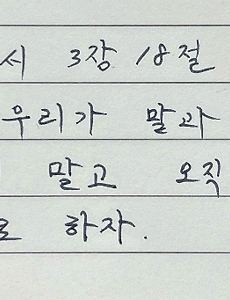 서 3장 18절
우리가 말과
말고 오직
로 하자.